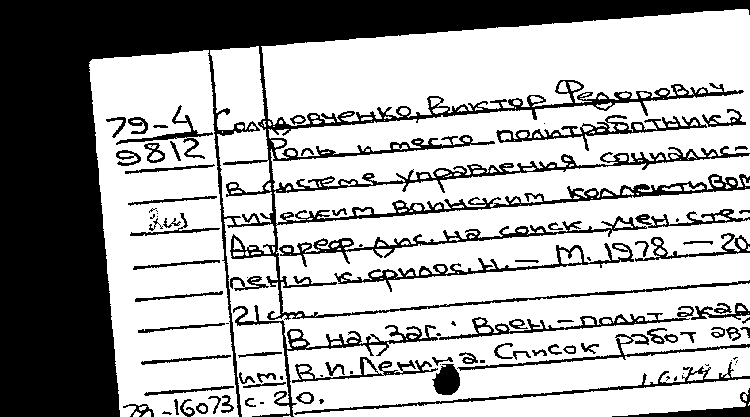 79-4 Солодовченко, Виктор Федорович.
9812 Роль и место политработника
в системе управления социалис-
тическим воинским коллективом
Автореф. дис. на соиск. учен. сте-
пени к. филос. н. — М., 1978. — 20
21 см.
В надзаг.: Воен.-полит акад
им. В.И. Ленина. Список работ авт
79-16073 с. 20.